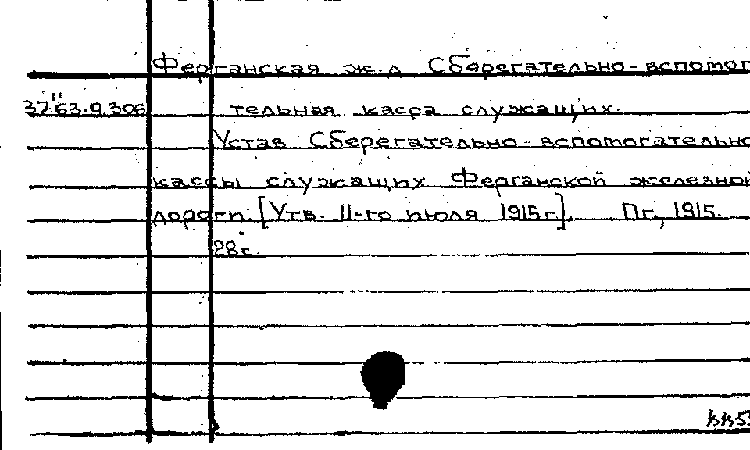 Ферганская ж.д. Сберегательно-вспомог
37"63.9.306 тельная касса служащих.
Устав Сберегательно-вспомогательно
кассы служащих Ферганской железной
дороги. [Утв. 11-го июля 1915г]. Пг, 1915.
28с.